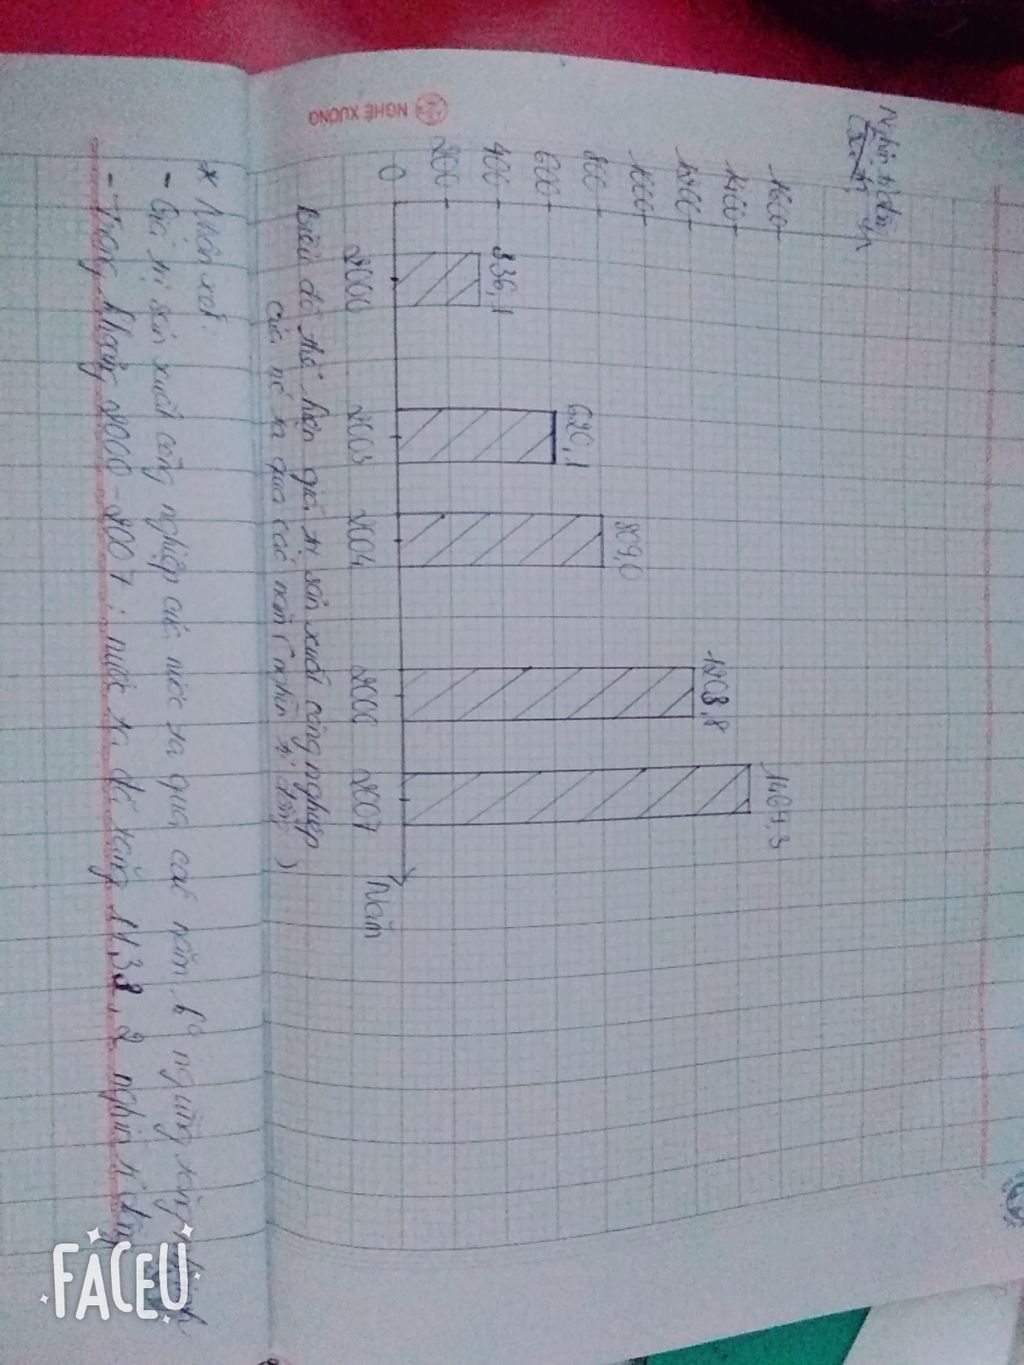 Nghìn tỉ đồng
1600
1400
1200
1000
800
600
400
200
0
336,1
620,1
809,0
1203,8
1469,3
2000
2003
2004
2006
2007
Năm
Biểu đồ thể hiện giá trị sản xuất công nghiệp
của nc ta qua các năm (nghìn tỉ đồng)
* Nhận xét.
- Giá trị sản xuất công nghiệp của nước ta qua các năm ngừng tăng
- Trong khoảng 2000 - 2007: nước ta đã tăng 1138,2 nghìn tỉ đồng
NGHỆ XƯƠNG
FACEU